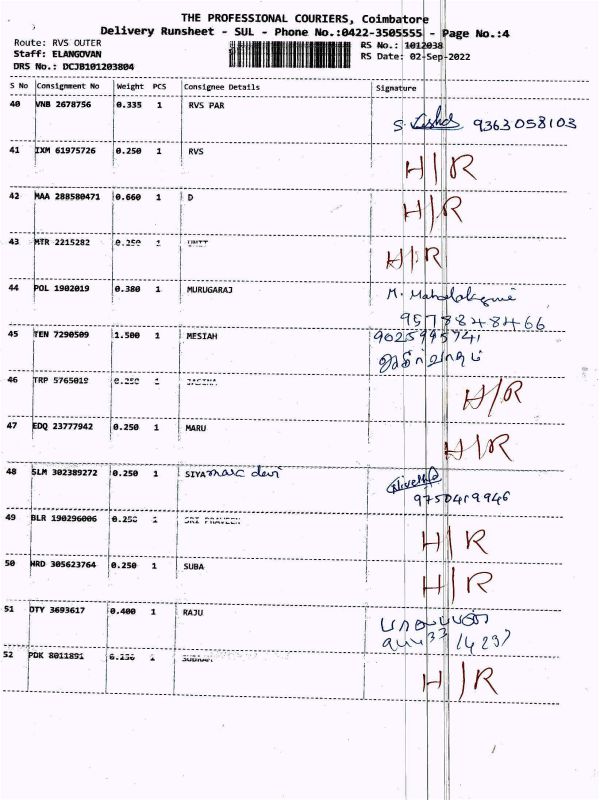 THE PROFESSIONAL COURIERS, Coimbatore
Delivery Runsheet - SUL - Phone No.:0422-3505555 - Page No.:4
Route: RVS OUTER
RS No.: 1012038
Staff: ELANGOVAN
RS Date: 02-Sep-2022
DRS No.: DCJB101203804
S No Consignment No Weight PCS Consignee Details Signature
40 VNB 2678756 0.335 1 RVS PAR
S. 9363058103
41 IXM 61975726 0.250 1 RVS H/R
42 MAA 288580471 0.660 1 D H/R
43 MTR 2215282 0.250 1 UNIT H/R
44 POL 1902019 0.380 1 MURUGARAJ M. Mahalakshmi
9578848466
45 TEN 7290509 1.500 1 MESIAH 9025995741
46 TRP 5765019 0.250 1 H/R
47 EDQ 23777942 0.250 1 MARU H/R
48 SLM 302389272 0.250 1 SIYA devi
9750419946
49 BLR 190296006 0.250 1 SRI PRAVEEN H/R
50 HRD 305623764 0.250 1 SUBA H/R
51 OTY 3693617 0.400 1 RAJU
52 PDK 8011891 1 H/R